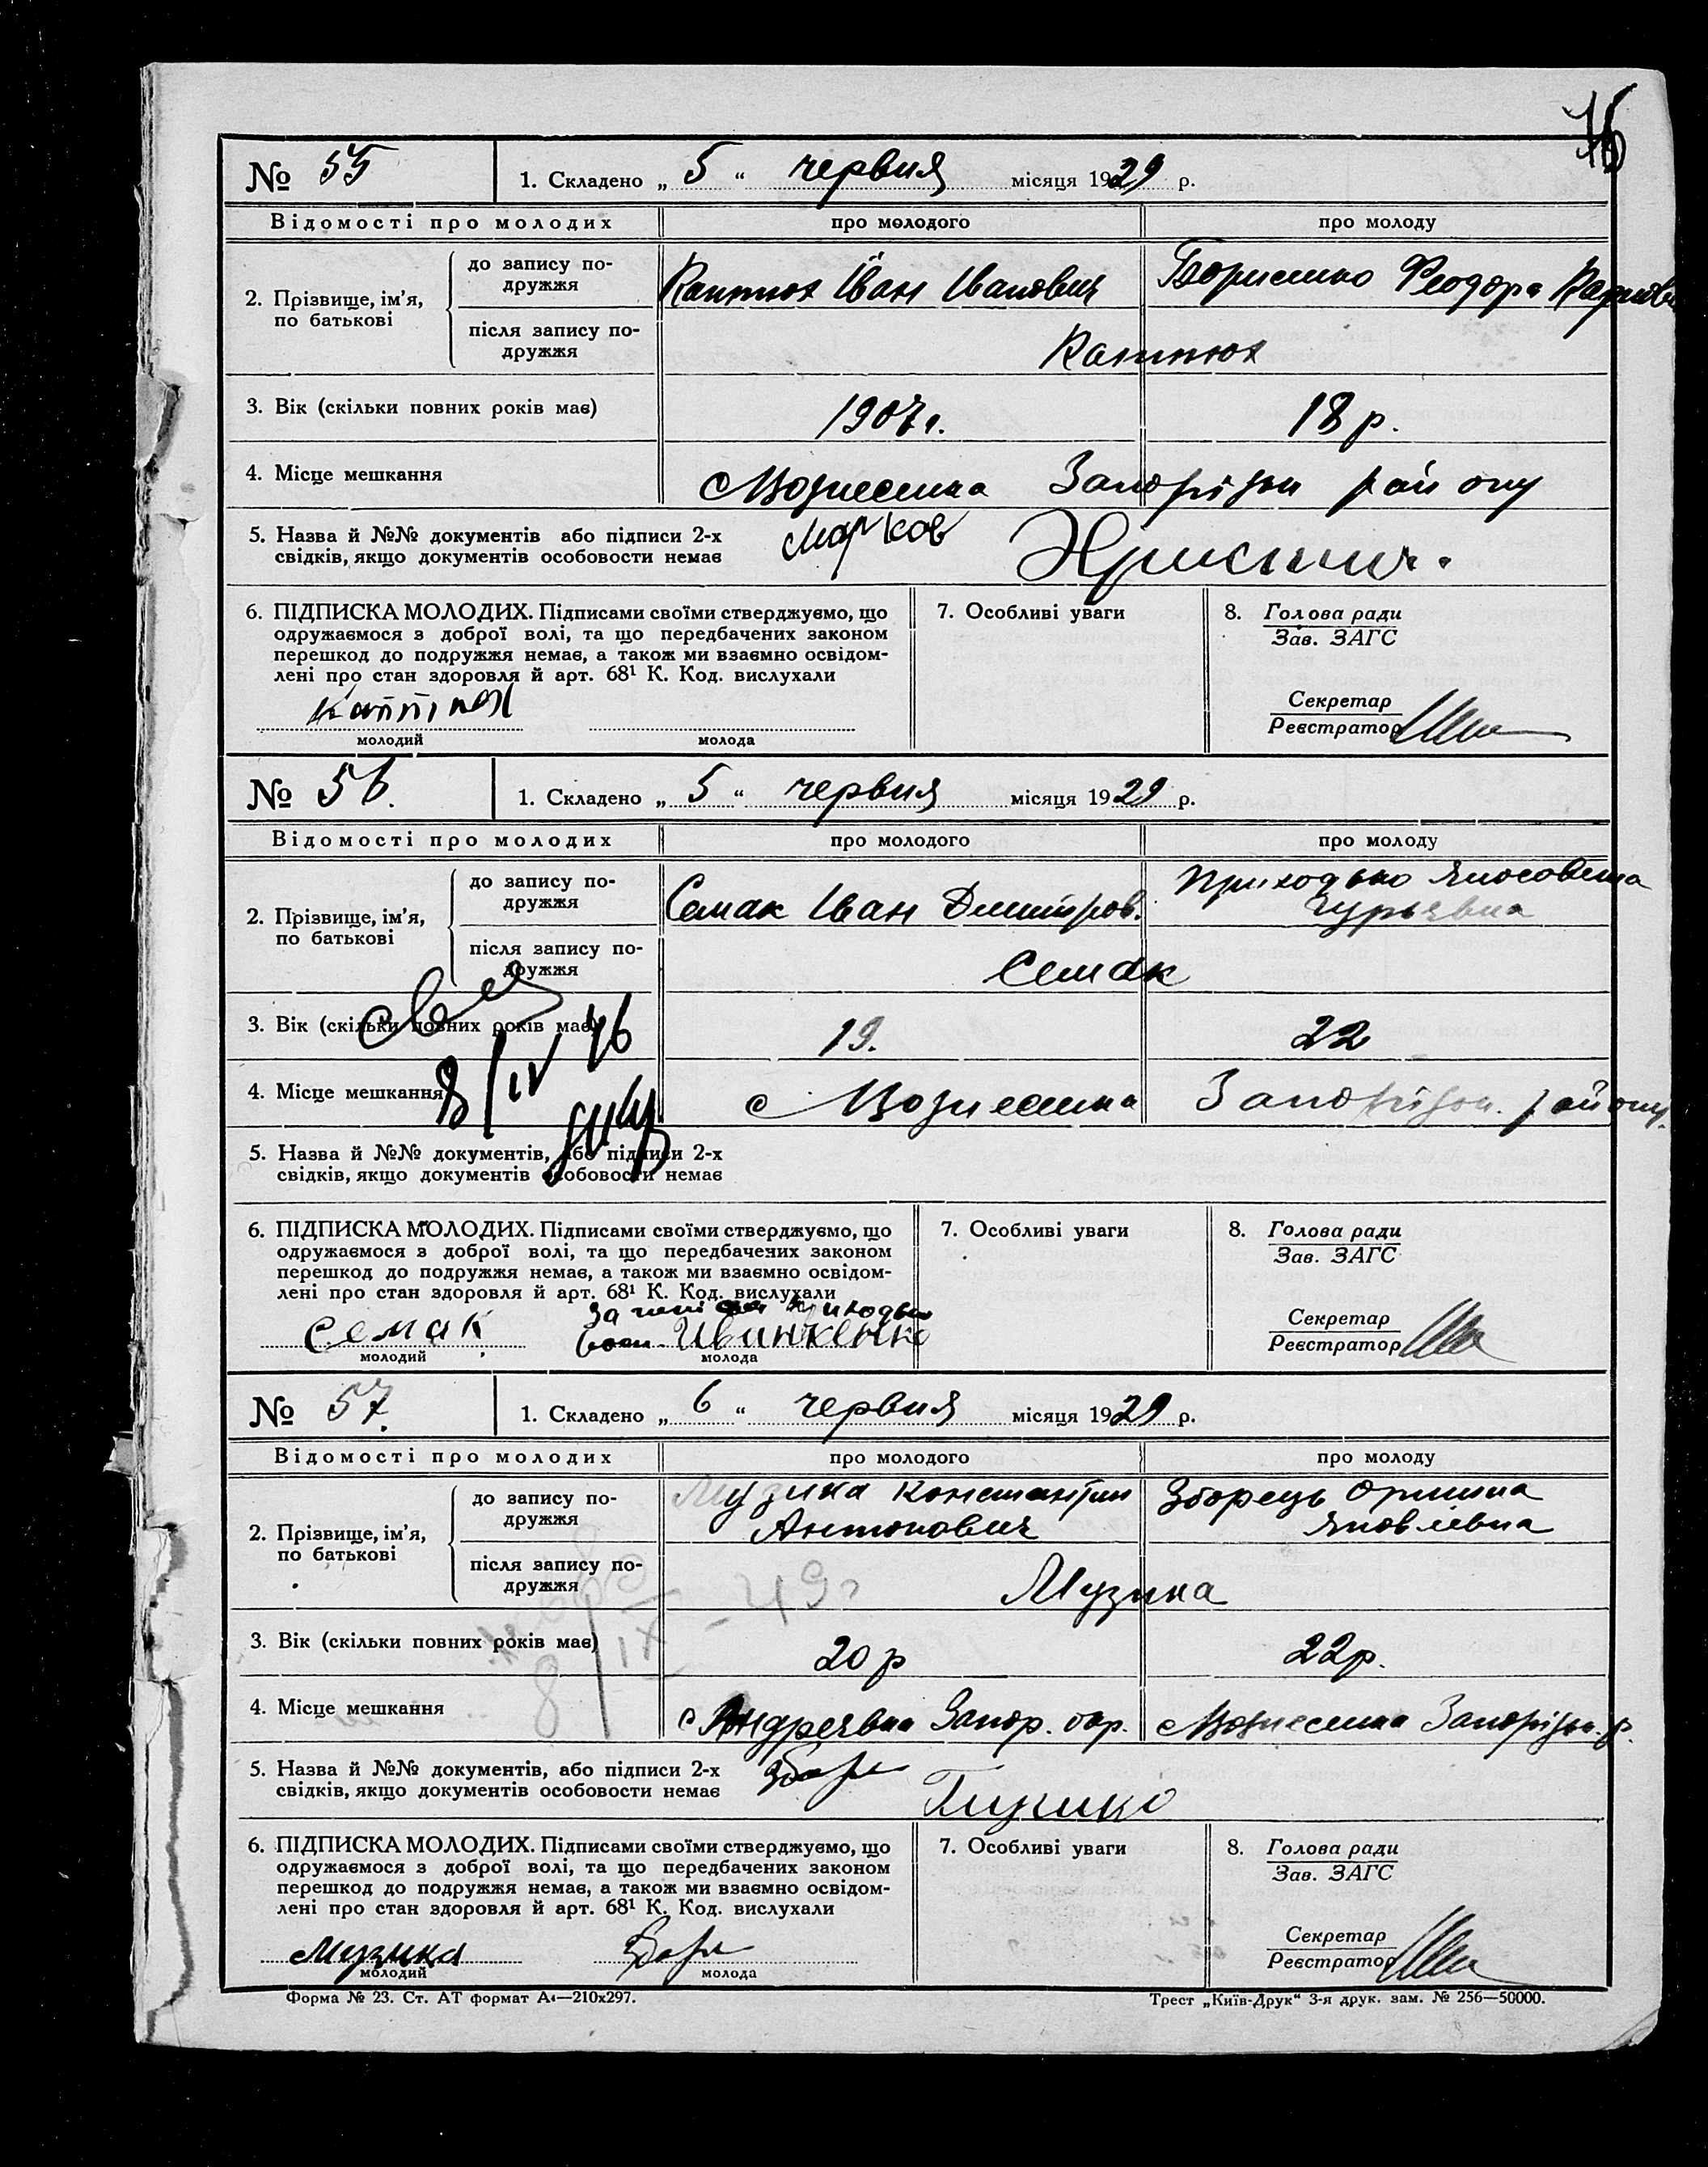 16
№ 55 1. Складено „ 5 “ червня місяця 1929 р.
Відомості про молодих про молодого про молоду
2. Прізвище, ім'я, по батькові
до запису подружжя
Іван Іванович
Феодора
після запису подружжя
3. Вік (скільки повних років має) 1907 г. 18 р.
4. Місце мешкання с Вознесенка району
5. Назва й №№ документів або підписи 2-х
свідків, якщо документів особовости немає
Марков
6. ПІДПИСКА МОЛОДИХ. Підписами своїми стверджуємо, що
одружаємося з доброї волі, та що передбачених законом
перешкод до подружжя немає, а також ми взаємно освідом-
лені про стан здоровля й арт. 68¹ К. Код. вислухали
молодий молода
7. Особливі уваги
8. Голова ради
Зав. ЗАГС
Секретар
Реєстратор
№ 56. 1. Складено „ 5 “ червня місяця 1929 р.
Відомості про молодих про молодого про молоду
2. Прізвище, ім'я, по батькові
до запису подружжя
Семак Іван Дмитров.
Приходько
Гурьевна
після запису подружжя
Семак
3. Вік (скільки повних років має) 19. 22
8/IV 46
4. Місце мешкання с Вознесенка району.
5. Назва й №№ документів, або підписи 2-х
свідків, якщо документів особовости немає
6. ПІДПИСКА МОЛОДИХ. Підписами своїми стверджуємо, що
одружаємося з доброї волі, та що передбачених законом
перешкод до подружжя немає, а також ми взаємно освідом-
лені про стан здоровля й арт. 68¹ К. Код. вислухали
Семак
молодий молода
7. Особливі уваги
8. Голова ради
Зав. ЗАГС
Секретар
Реєстратор
№ 57. 1. Складено „ 6 “ червня місяця 1929 р.
Відомості про молодих про молодого про молоду
2. Прізвище, ім'я, по батькові
до запису подружжя
Музика Константин
Антонович
Зборець Оришка
Яковлівна
після запису подружжя
Музика
3. Вік (скільки повних років має) 20 р 22 р.
8/IX - 49 г
4. Місце мешкання с Запор. окр. с Вознесенка
5. Назва й №№ документів, або підписи 2-х
свідків, якщо документів особовости немає
6. ПІДПИСКА МОЛОДИХ. Підписами своїми стверджуємо, що
одружаємося з доброї волі, та що передбачених законом
перешкод до подружжя немає, а також ми взаємно освідом-
лені про стан здоровля й арт. 68¹ К. Код. вислухали
Музика
молодий молода
7. Особливі уваги
8. Голова ради
Зав. ЗАГС
Секретар
Реєстратор
Форма № 23. Ст. АТ формат А4—210х297. Трест „Київ-Друк“ 3-я друк. зам. № 256—50000.